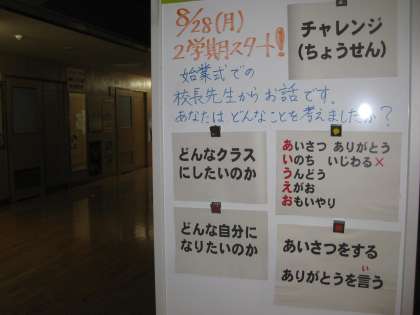 8/28(月)
2学期スタート!
始業式での
校長先生からお話です。
あなたは どんなことを考えましたか?
チャレンジ
(ちょうせん)
どんなクラス
にしたいのか
あいさつ ありがとう
いのち いじわる×
うんどう
えがお
おもいやり
どんな自分に
なりたいのか
あいさつをする
ありがとうを言う
い